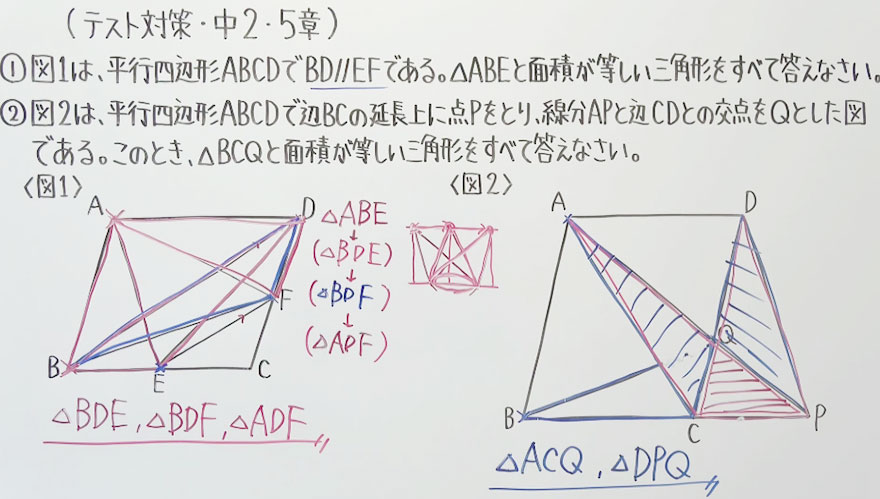 (テスト対策・中2・5章)
①図1は、平行四辺形ABCDでBD//EFである。△ABEと面積が等しい三角形をすべて答えなさい。
②図2は、平行四辺形ABCDで辺BCの延長上に点Pをとり、線分APと辺CDとの交点をQとした図
である。このとき、△BCQと面積が等しい三角形をすべて答えなさい。
〈図1〉
A
D
F
B
E
C
△ABE
↓
(△BDE)
↓
(△BDF)
↓
(△ADF)
△BDE, △BDF, △ADF
〈図2〉
A
D
Q
B
C
P
△ACQ, △DPQ